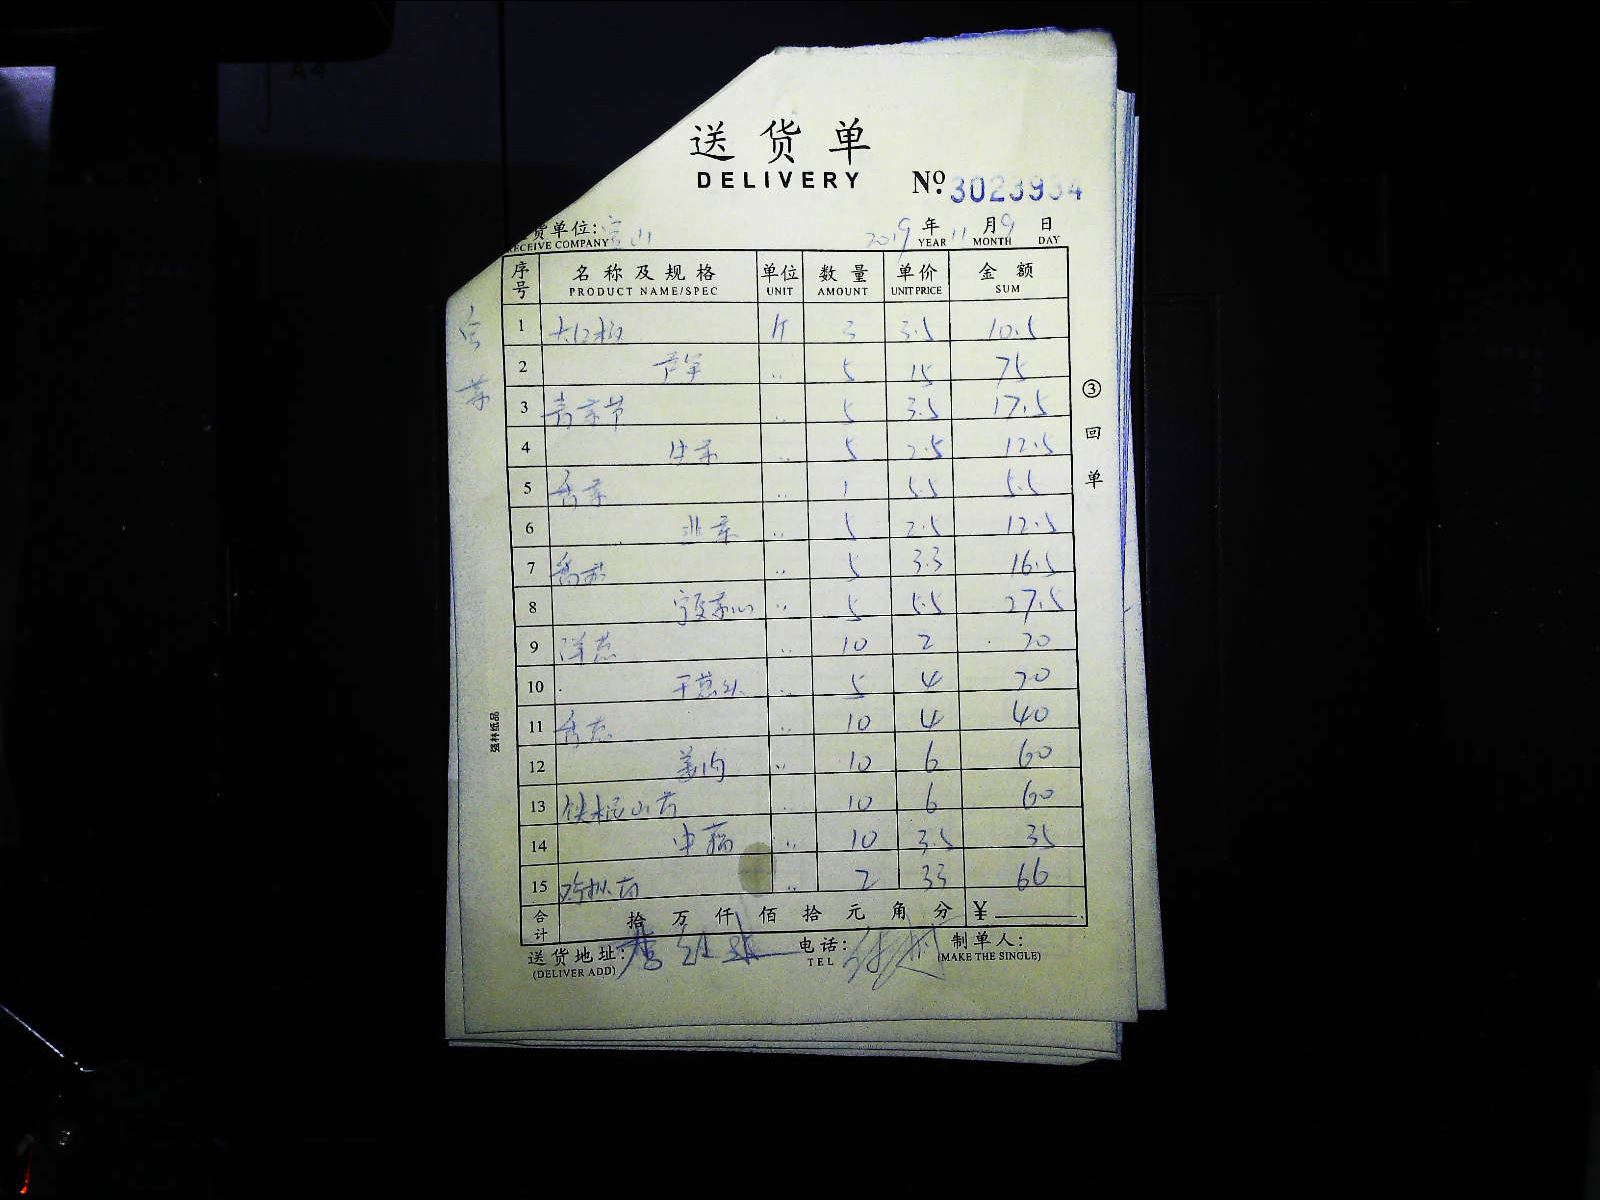 送货单
DELIVERY
No. 3023934
货单位: 宝山
RECEIVE COMPANY
2019 年 11 月 9 日
YEAR MONTH DAY
序号 名称及规格 单位 数量 单价 金额
PRODUCT NAME/SPEC UNIT AMOUNT UNIT PRICE SUM
1 大红椒 斤 3 3.5 10.5
2 芦笋 〃 5 15 75
3 5 3.5 17.5
4 生菜 〃 5 2.5 12.5
5 香菜 〃 1 5.5 5.5
6 韭菜 〃 5 2.5 12.5
7 〃 5 3.3 16.5
8 〃 5 5.5 27.5
9 洋葱 〃 10 2 20
10 干葱头 〃 5 4 20
11 香葱 〃 10 4 40
12 姜肉 〃 10 6 60
13 铁棍山药 〃 10 6 60
14 中藕 〃 10 3.5 35
15 〃 2 33 66
合计 拾 万 仟 佰 拾 元 角 分 ¥
送货地址: 电话: 制单人:
(DELIVER ADD) TEL (MAKE THE SINGLE)
③回单
强林纸品